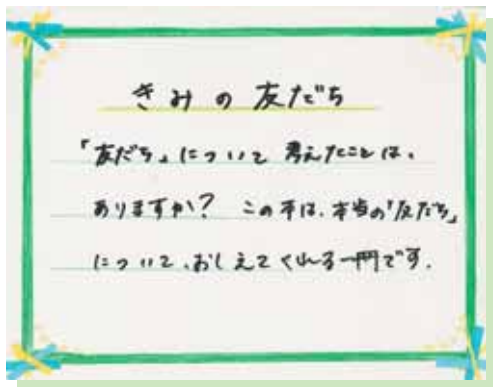 きみの友だち
「友だち」について 考えたことは、
ありますか? この本は、本当の「友だち」
について、おしえてくれる一冊です.